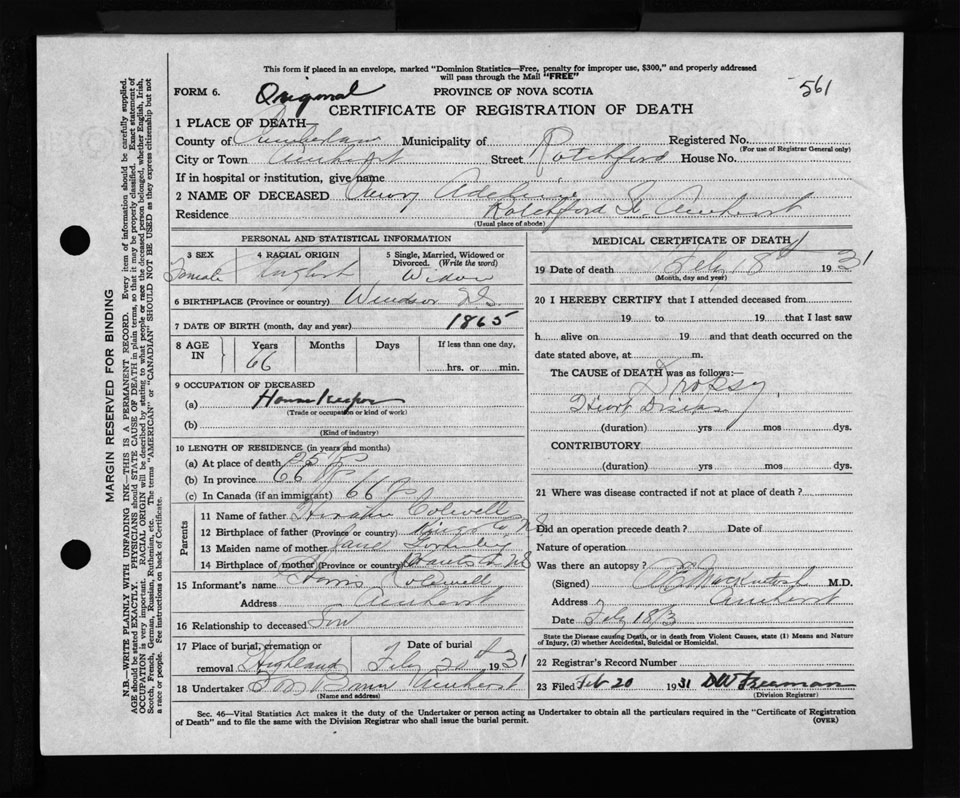 This form if placed in an envelope, marked "Dominion Statistics—Free, penalty for improper use, $300," and properly addressed
will pass through the Mail "FREE"
561
FORM 6. Original PROVINCE OF NOVA SCOTIA
CERTIFICATE OF REGISTRATION OF DEATH
1 PLACE OF DEATH
County of Municipality of Registered No.
(For use of Registrar General only)
City or Town Amherst Street Ratchford House No.
If in hospital or institution, give name
2 NAME OF DECEASED
Residence Ratchford St. Amherst
(Usual place of abode)
PERSONAL AND STATISTICAL INFORMATION
3 SEX 4 RACIAL ORIGIN 5 Single, Married, Widowed or
Divorced. (Write the word)
Female English Widow
6 BIRTHPLACE (Province or country) Windsor N.S.
7 DATE OF BIRTH (month, day and year) 1865
8 AGE IN Years Months Days If less than one day,
66 hrs. or min.
9 OCCUPATION OF DECEASED
(a) House Keeper
(Trade or occupation or kind of work)
(b)
(Kind of industry)
10 LENGTH OF RESIDENCE (in years and months)
(a) At place of death 25
(b) In province 66
(c) In Canada (if an immigrant) 66
Parents
11 Name of father Colwell
12 Birthplace of father (Province or country) Kings Co N.S.
13 Maiden name of mother Jane
14 Birthplace of mother (Province or country) Hants Co N.S.
15 Informant's name Colwell
Address Amherst
16 Relationship to deceased Son
17 Place of burial, cremation or Date of burial
removal Highland Feb 20 1931
18 Undertaker Amherst
(Name and address)
MEDICAL CERTIFICATE OF DEATH
19 Date of death Feb 18 1931
(Month, day and year)
20 I HEREBY CERTIFY that I attended deceased from
19 to 19 that I last saw
h alive on 19 and that death occurred on the
date stated above, at m.
The CAUSE of DEATH was as follows:—
Dropsy
Heart Disease
(duration) yrs mos dys.
CONTRIBUTORY
(duration) yrs mos dys.
21 Where was disease contracted if not at place of death?
Did an operation precede death? Date of
Nature of operation
Was there an autopsy?
(Signed) MacKintosh M.D.
Address Amherst
Date Feb 18/31
State the Disease causing Death, or in death from Violent Causes, state (1) Means and Nature
of Injury, (2) whether Accidental, Suicidal or Homicidal.
22 Registrar's Record Number
23 Filed Feb 20 1931 DW Freeman
(Division Registrar)
Sec. 46—Vital Statistics Act makes it the duty of the Undertaker or person acting as Undertaker to obtain all the particulars required in the "Certificate of Registration
of Death" and to file the same with the Division Registrar who shall issue the burial permit.
(OVER)
MARGIN RESERVED FOR BINDING
N.B.—WRITE PLAINLY WITH UNFADING INK—THIS IS A PERMANENT RECORD. Every item of information should be carefully supplied.
AGE should be stated EXACTLY. PHYSICIANS should STATE CAUSE OF DEATH in plain terms, so that it may be properly classified. Exact statement of
OCCUPATION is very important. RACIAL ORIGIN will be described by stating to what people or race the deceased person belonged, whether English, Irish,
Scotch, French, German, Russian, Ruthenian, etc. The terms "AMERICAN" or "CANADIAN" SHOULD NOT BE USED as they express citizenship but not
a race or people. See instructions on back of Certificate.